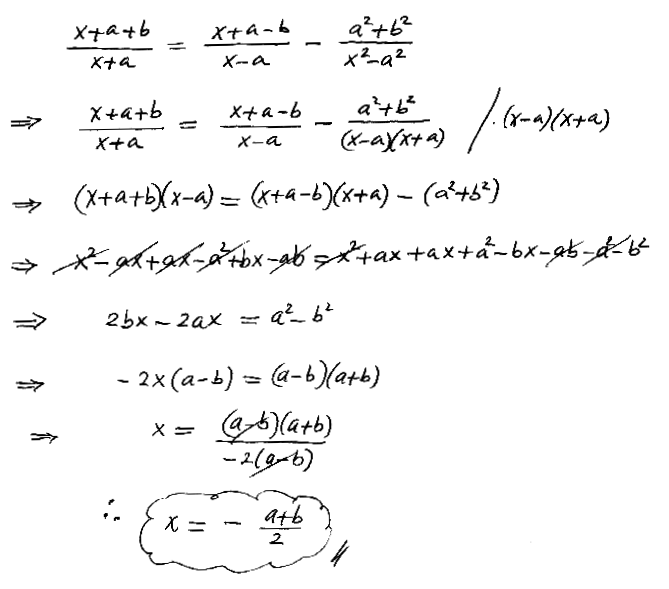 (x+a+b)/(x+a) = (x+a-b)/(x-a) - (a²+b²)/(x²-a²)
⇒ (x+a+b)/(x+a) = (x+a-b)/(x-a) - (a²+b²)/((x-a)(x+a)) /·(x-a)(x+a)
⇒ (x+a+b)(x-a) = (x+a-b)(x+a) - (a²+b²)
⇒ x²-ax+ax-a²+bx-ab = x²+ax+ax+a²-bx-ab-a²-b²
⇒ 2bx-2ax = a²-b²
⇒ -2x(a-b) = (a-b)(a+b)
⇒ x = ((a-b)(a+b))/(-2(a-b))
∴ x = - (a+b)/2 //